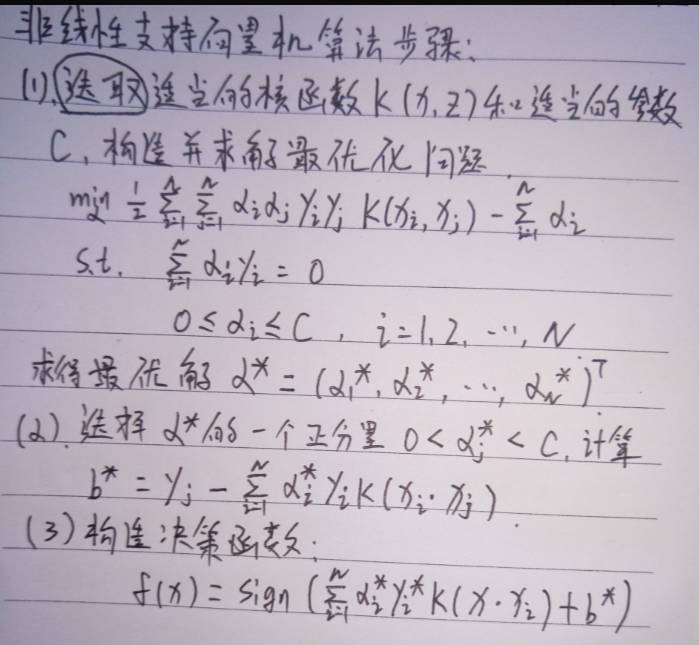 非线性支持向量机算法步骤:
(1).选取适当的核函数 K(x,z)和适当的参数
C,构造并求解最优化问题.
min α 1/2 ∑_{i=1}^{N} ∑_{j=1}^{N} αiαj yiyj K(xi, xj) - ∑_{i=1}^{N} αi
s.t. ∑_{i=1}^{N} αiyi = 0
0 ≤ αi ≤ C , i=1,2,…,N
求得最优解 α* = (α1*, α2*, …, αN*)^T.
(2).选择 α*的一个正分量 0 < αj* < C,计算
b* = yj - ∑_{i=1}^{N} αi* yi K(xi·xj).
(3)构造决策函数:
f(x) = sign (∑_{i=1}^{N} αi* yi* K(x·xi)+b*)